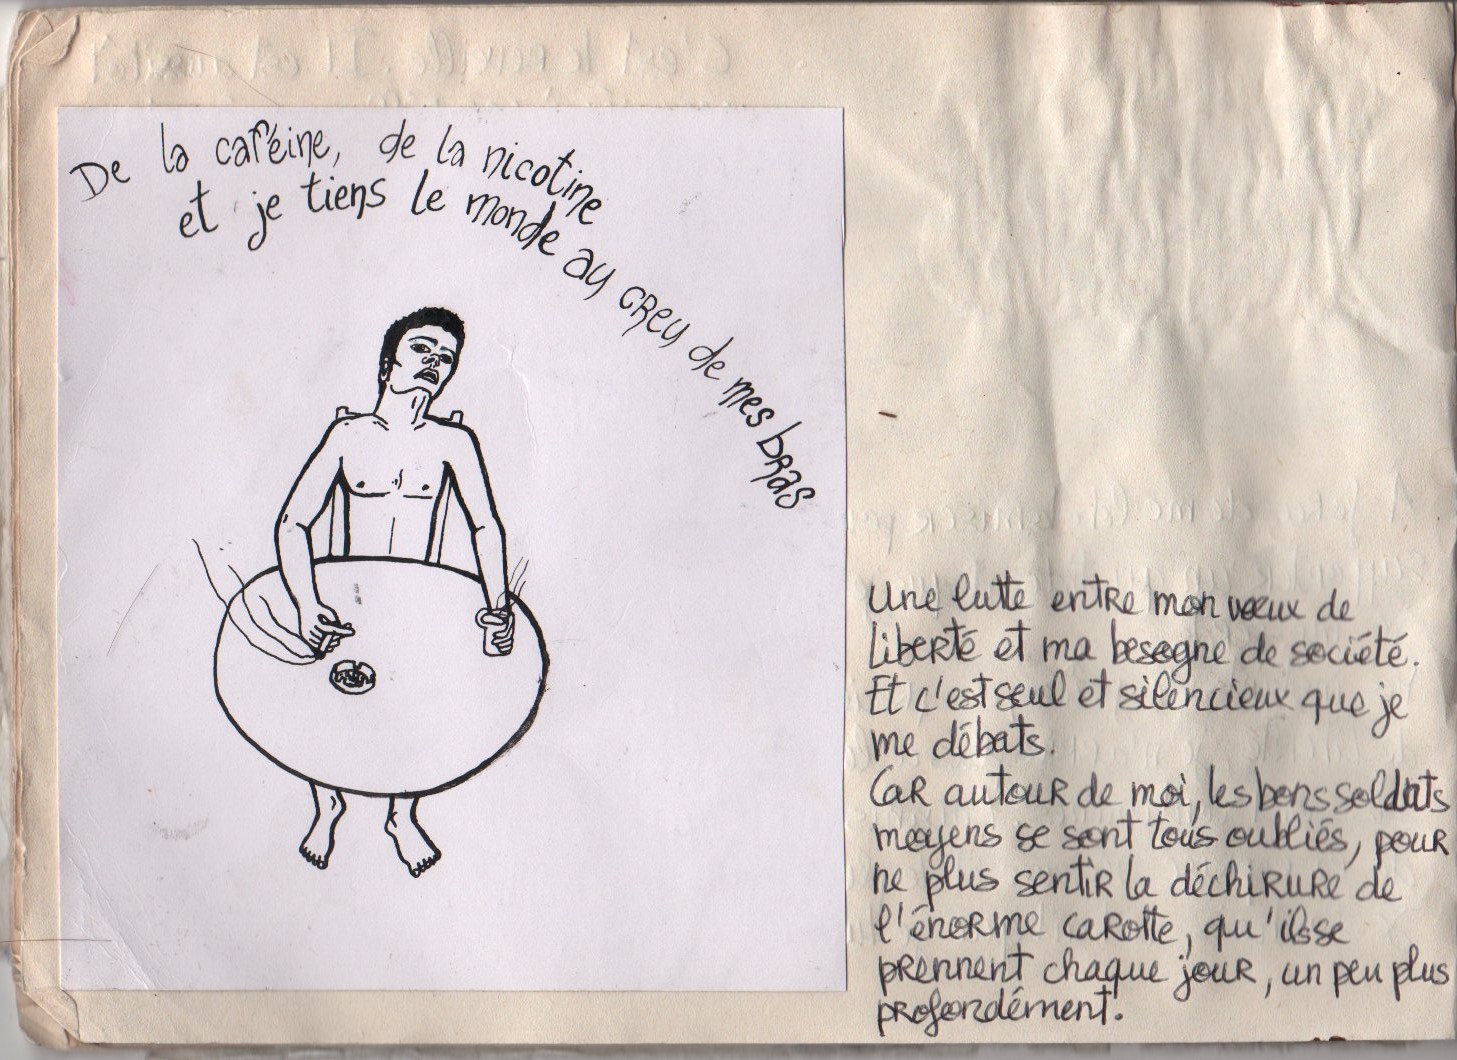 De la caféine, de la nicotine
et je tiens le monde au creu de mes bras
Une lutte entre mon vœux de
liberté et ma besogne de société.
Et c'est seul et silencieux que je
me débats.
Car autour de moi, les bons soldats
moyens se sont tous oubliés, pour
ne plus sentir la déchirure de
l'énorme carotte, qu'ils se
prennent chaque jour, un peu plus
profondément.